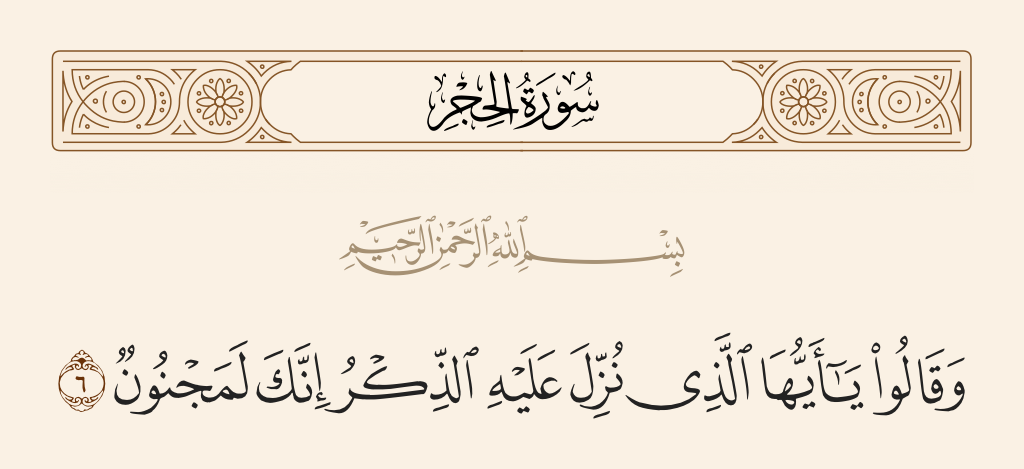 سُورَةُ الحِجْرِ
بِسْمِ ٱللَّهِ ٱلرَّحْمَٰنِ ٱلرَّحِيمِ
وَقَالُوا۟ يَـٰٓأَيُّهَا ٱلَّذِى نُزِّلَ عَلَيْهِ ٱلذِّكْرُ إِنَّكَ لَمَجْنُونٌ ٦